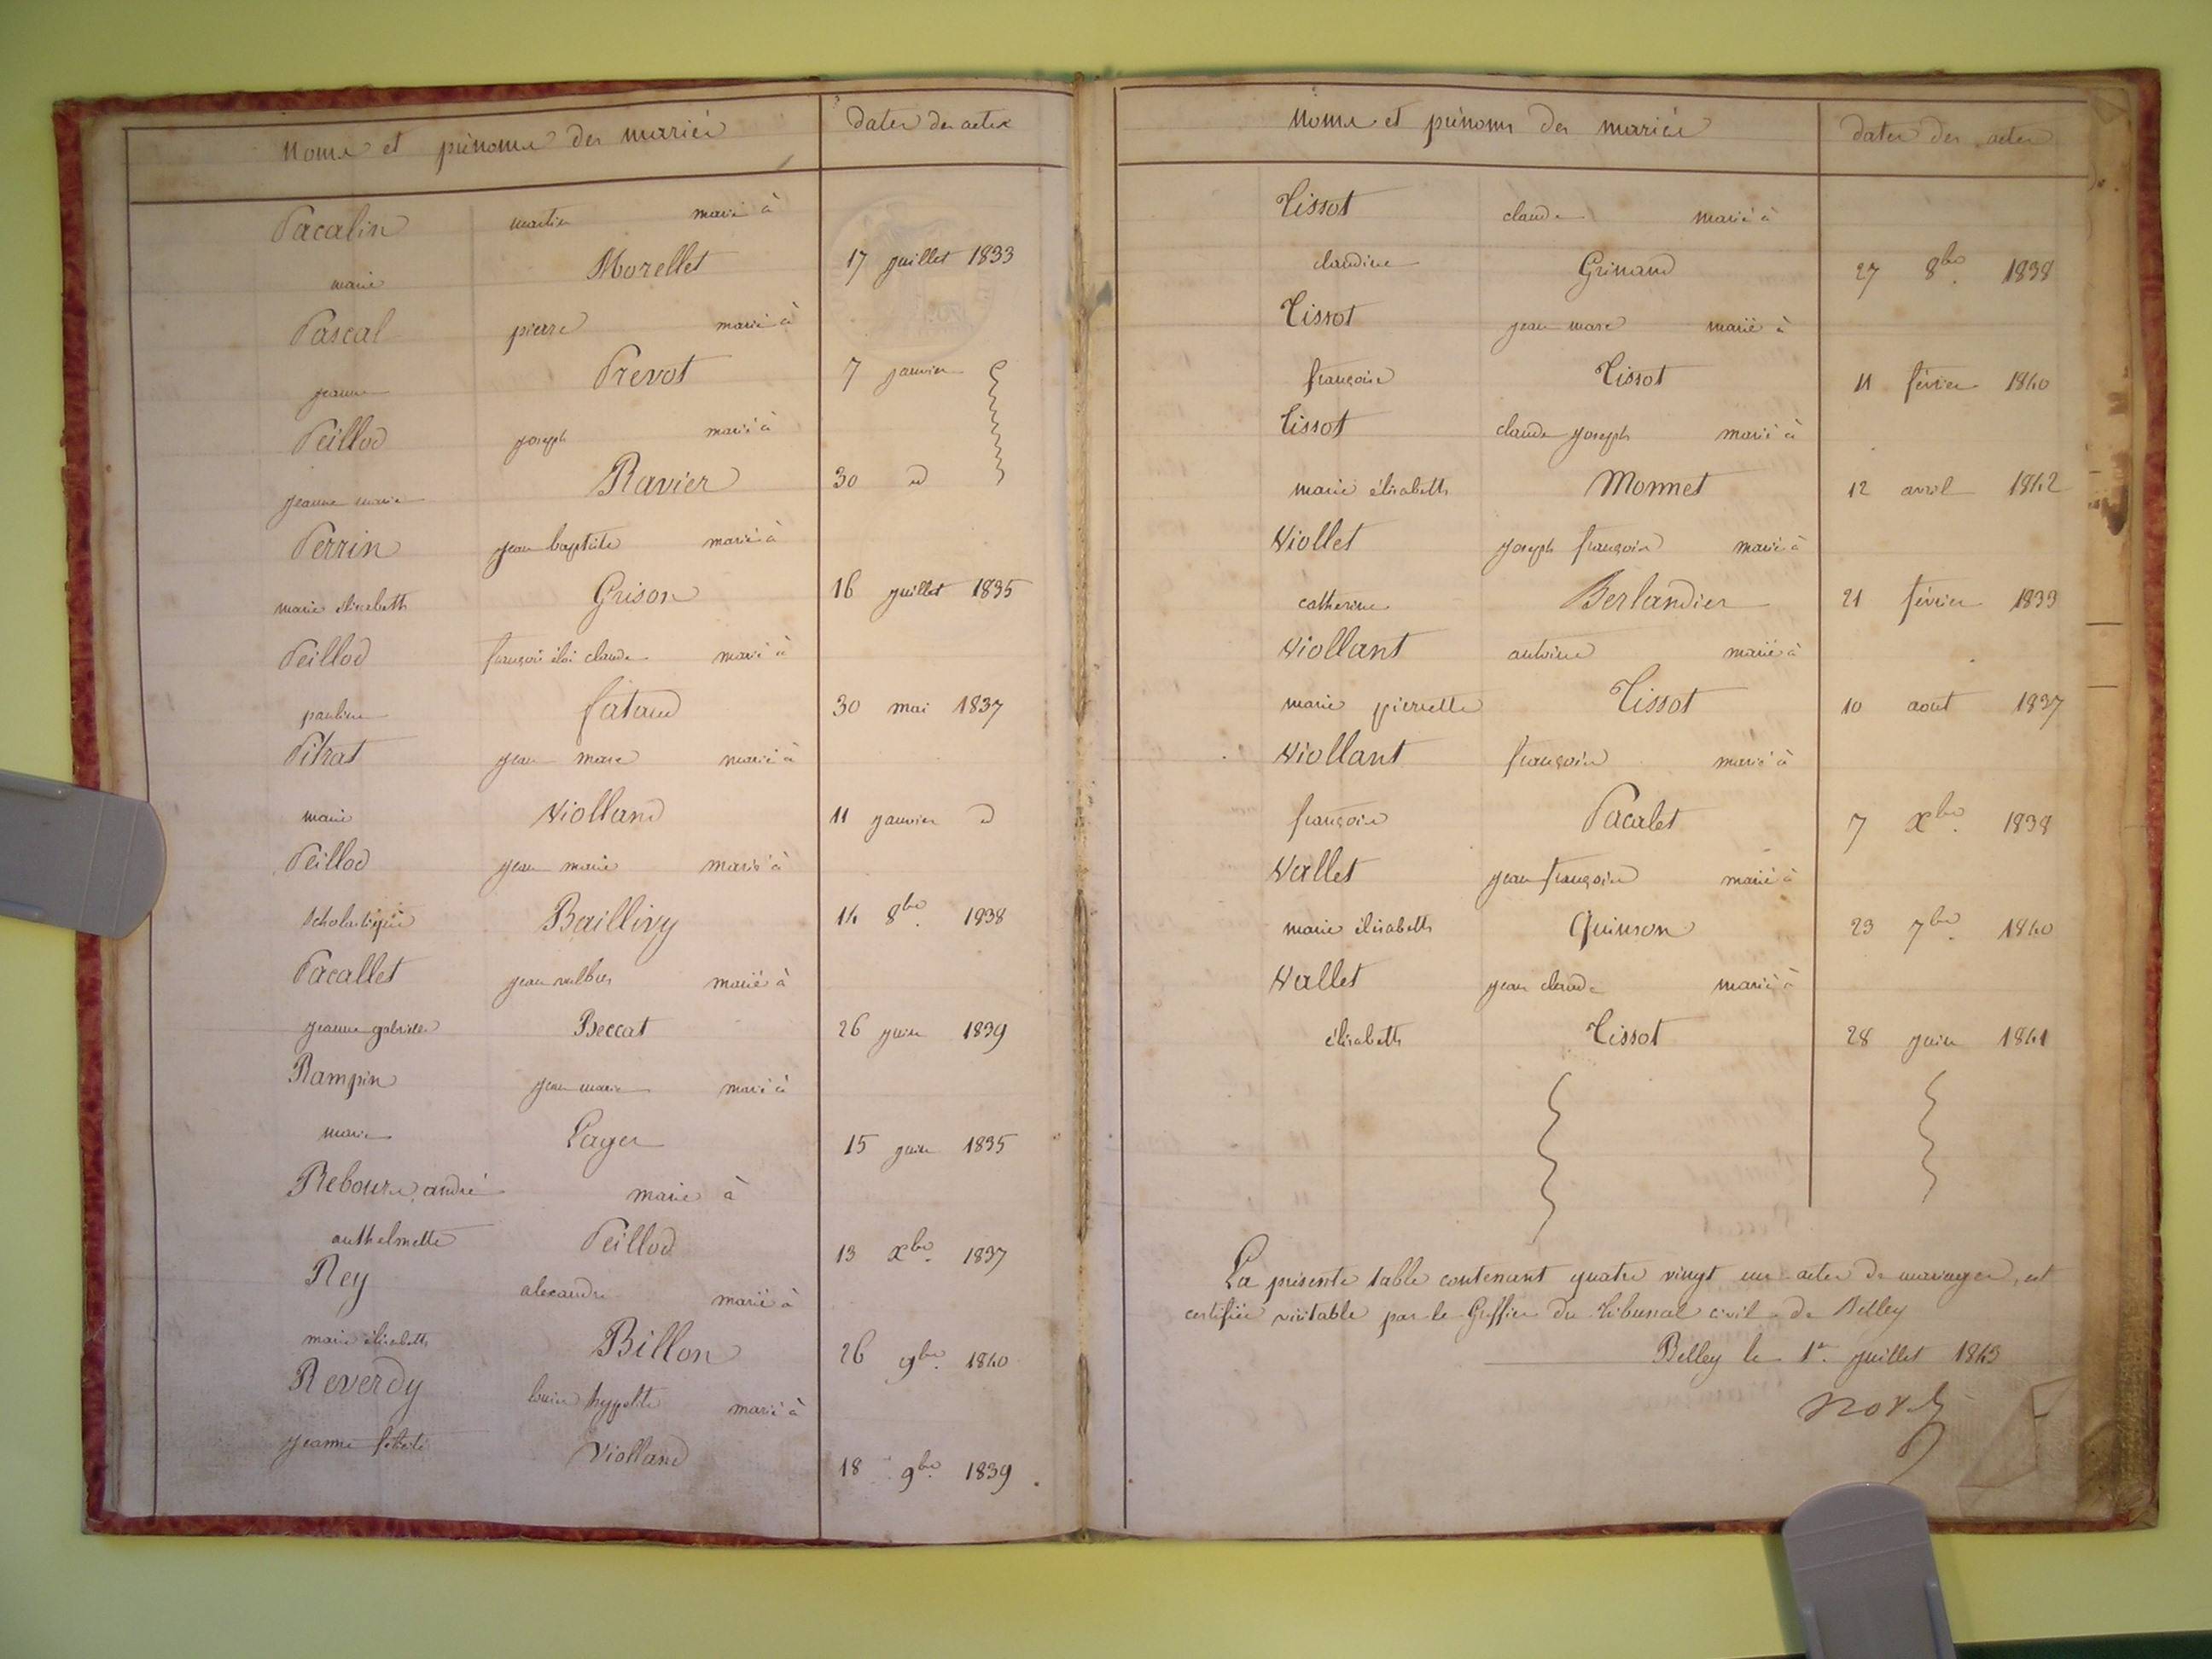 Noms et prénoms des mariés dates des actes
Pacalin martin marié à
marie Morellet 17 juillet 1833
Pascal pierre marié à
jeanne Prevot 7 janvier
Peillod joseph marié à
jeanne marie Ravier 30 d
Perrin jean baptiste marié à
marie élisabeth Grison 16 juillet 1835
Peillod françois éloi claude marié à
pauline fataud 30 mai 1837
Pitrat jean marc marié à
marie Violland 11 janvier d
Peillod jean marie marié à
scholastique Baillivy 14 8bre 1838
Pacallet jean marié à
jeanne gabrielle Beccat 26 juin 1839
Rampin jean marie marié à
marie Lager 15 juin 1835
Reboux andré marié à
anthelmette Peillod 13 xbre 1837
Rey alexandre marié à
marie élisabeth Billon 26 9bre 1840
Reverdy louis hypolite marié à
jeanne félicité Violland 18 9bre 1839
Noms et prénoms des mariés dates des actes
Tissot claude marié à
claudine Grinand 27 8bre 1838
Tissot jean marc marié à
françoise Tissot 11 février 1840
Tissot claude joseph marié à
marie élisabeth Monnet 12 avril 1842
Viollet joseph françois marié à
catherine Berlandier 21 février 1833
Viollant antoine marié à
marie pierrette Tissot 10 aout 1837
Viollant françois marié à
françoise Pacalet 7 xbre 1838
Vallet jean françois marié à
marie élisabeth Quinson 23 7bre 1840
Vallet jean claude marié à
élisabeth Tissot 28 juin 1841
La présente table contenant quatre vingt un actes de mariages, est
certifiée véritable par le Greffier du tribunal civil de Belley
Belley le 1er juillet 1843